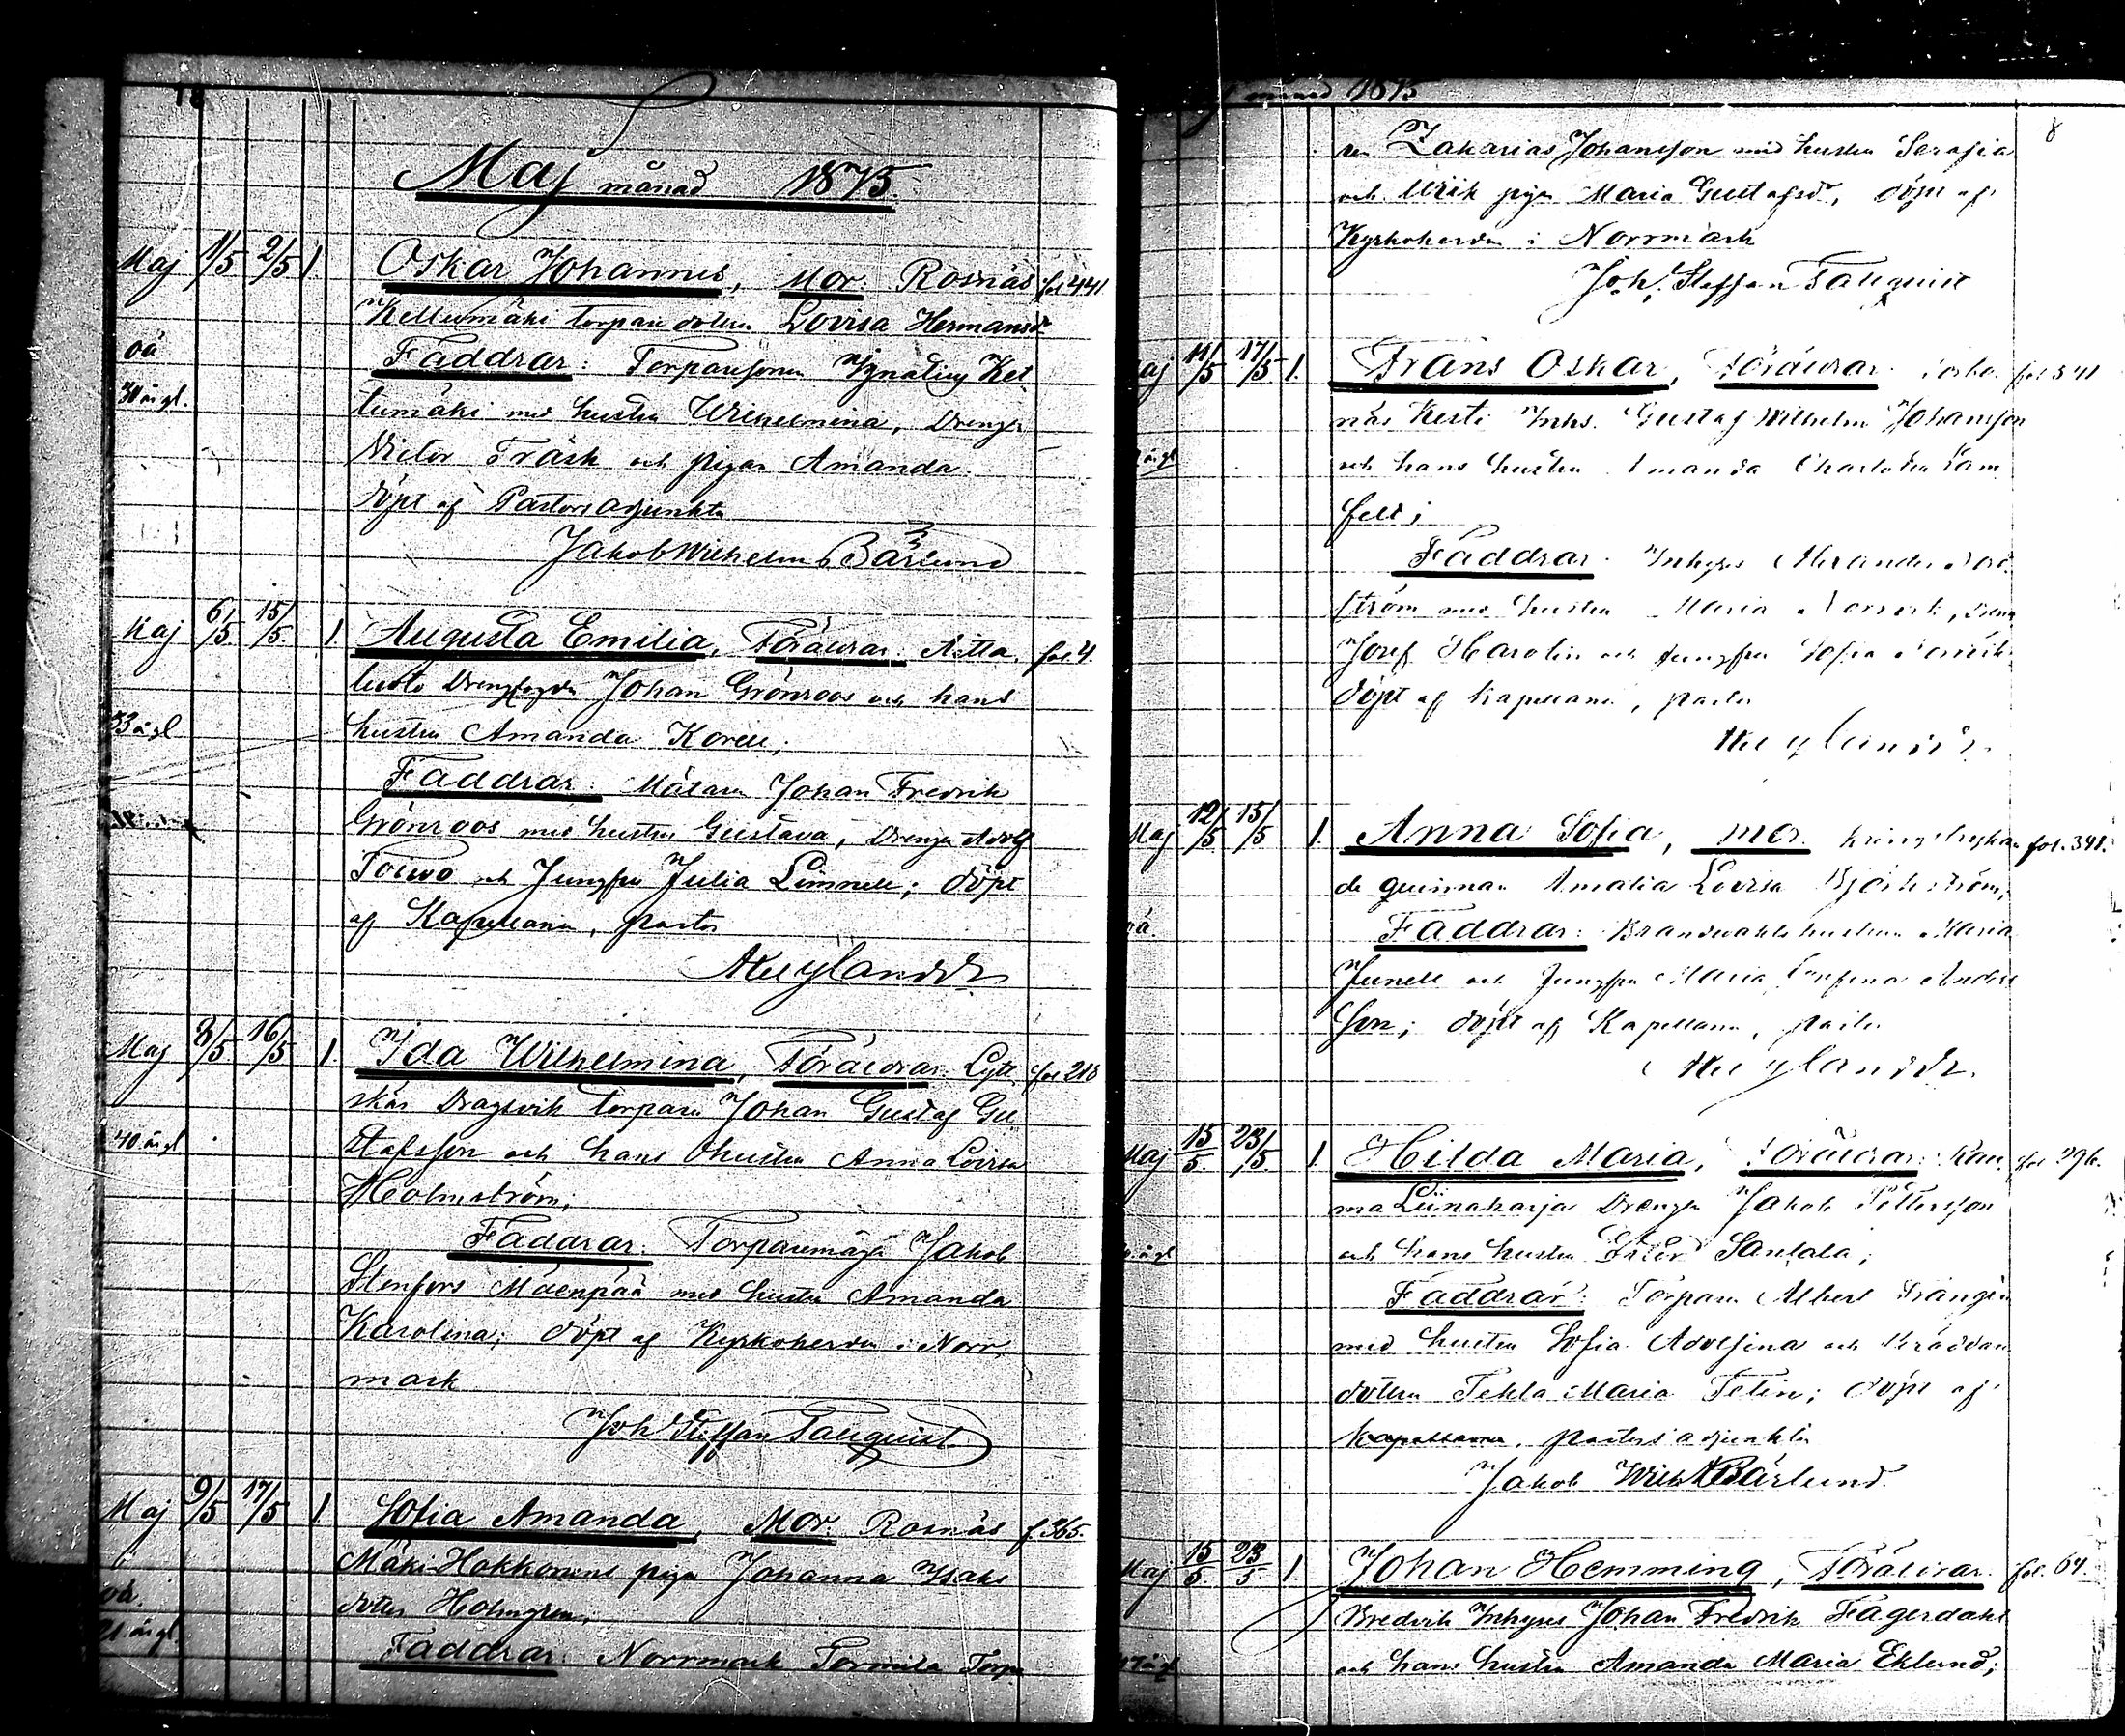 18
Maj månad 1875.
Maj 1/5 2/5 1 Oskar Johannes, Mor: Rosnäs fol 441
Kellumäki torpare dottren Lovisa Hermansdr
oä Faddrar: Torparesonen Ignatius Ket
30 år gl. tumäki med hustru Wilhelmina, Drengen
Victor Träsk och pigan Amanda
döpt af Pastorsadjunkten
Jakob Wilhelm Bärlund
Maj 6/5 15/5. 1. Augusta Emilia, Föräldrar: Aitta, fol 4.
luoto Drengfogden Johan Grönroos och hans
33 år gl hustru Amanda Korell;
Faddrar: Mätaren Johan Fredrik
Grönroos med hustru Gustava, Drengen Adolf
Toivo och Jungfru Julia Limnell; döpt
af Kapellanen, pastor
Nylander
Maj 8/5 16/5 1. Ida Wilhelmina, Föräldrar: Lytt fol 218
skär Dragsvik torparen Johan Gustaf Gu
40 år gl stafsson och hans hustru Anna Lovisa
Holmström;
Faddrar: Torparemågen Jakob
Stenfors Mäenpää med hustru Amanda
Karolina; döpt af Kyrkoherden i Norr,
mark
Joh Steffan Tauquist
Maj 9/5 17/5 1 Sofia Amanda, Mor: Rosnäs f. 365.
Mäki-Hokkonens piga Johanna Isaks
oä. dotter Holmgren,
21 år gl Faddrar: Norrmark Tormila Torpa
månad 1875 8
ren Zakarias Johansson med hustru Serafia
och Ulrik pigan Maria Gustafsdr, döpt af
Kyrkoherden i Norrmark
Joh. Steffan Tauquist
Maj 11/5 17/5 1. Frans Oskar, Föräldrar: fol 341
näs Kesti Inhs. Gustaf Wilhelm Johansson
år gl och hans hustru Amanda Charlotta Lam
felt;
Faddrar: Inhyses Alexander Nord
ström med hustru Maria
Josef Karolin och Jungfru Sofia
döpt af Kapellanen, pastor
Nylander
Maj 12/5 15/5 1. Anna Sofia, mor: kringstrykan fol. 341.
de qvinnan Amalia Lovisa Björkström;
oä. Faddrar: Brandvakts hustrun Maria
Junell och Jungfru Maria Josefina Anders
son; döpt af Kapellanen, pastor
Nylander.
Maj 15/5. 23/5. 1 Hilda Maria, Föräldrar: Rau, fol 296.
ma Liinaharja Drengen Jakob Pettersson
år gl och hans hustru Ester Santala;
Faddrar: Torparen Albert Frangén
med hustru Sofia Adolfina och Skräddare
dottren Tekla Maria Felin; döpt af
Kapellanen, pastorsadjunkten
Jakob Wilh Bärlund.
Maj 15/5. 23/5 1. Johan Hemming, Föräldrar: fol. 64.
Bredvik Inhyses Johan Fredrik Fagerdahl
år gl och hans hustru Amanda Maria Eklund;